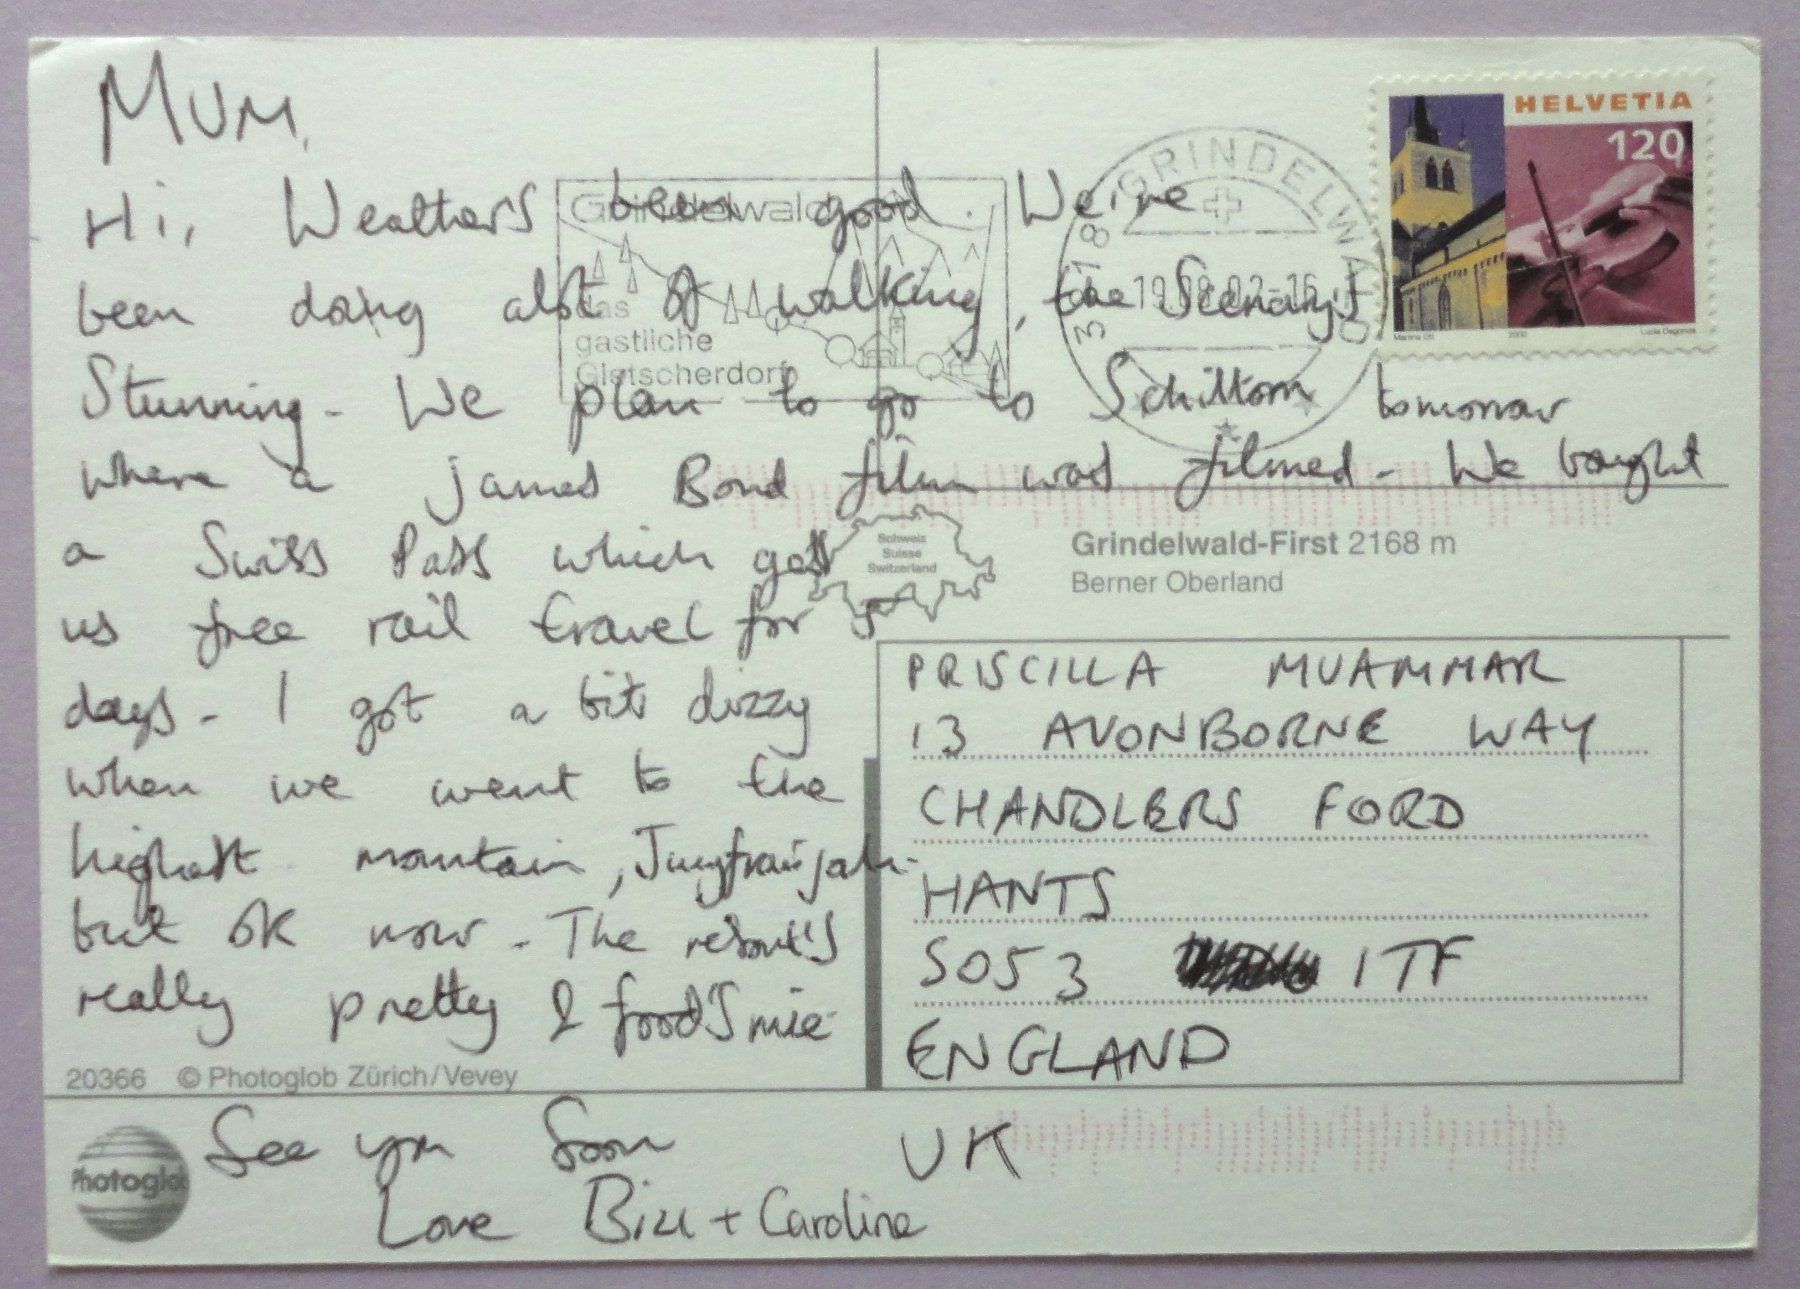 MUM,
Hi, Weather's been good. We've
been doing alot of walking, the Scenary's
Stunning. We plan to go to Schiltorn tomorrow
where a james Bond film was filmed. We bought
a Swiss Pass which gets
us free rail travel for 5
days. I got a bit dizzy
when we went to the
highest mountain, Jungfraujoh
but OK now. The resort's
really pretty & food's nice
See you Soon
Love Bill + Caroline
Grindelwald
das
gastliche
Gletscherdorf
3818 GRINDELWALD
HELVETIA
120
2000
Schweiz
Suisse
Switzerland
Grindelwald-First 2168 m
Berner Oberland
PRISCILLA MUAMMAR
13 AVONBORNE WAY
CHANDLERS FORD
HANTS
SO53 1TF
ENGLAND
UK
20366 © Photoglob Zürich/Vevey
Photoglob